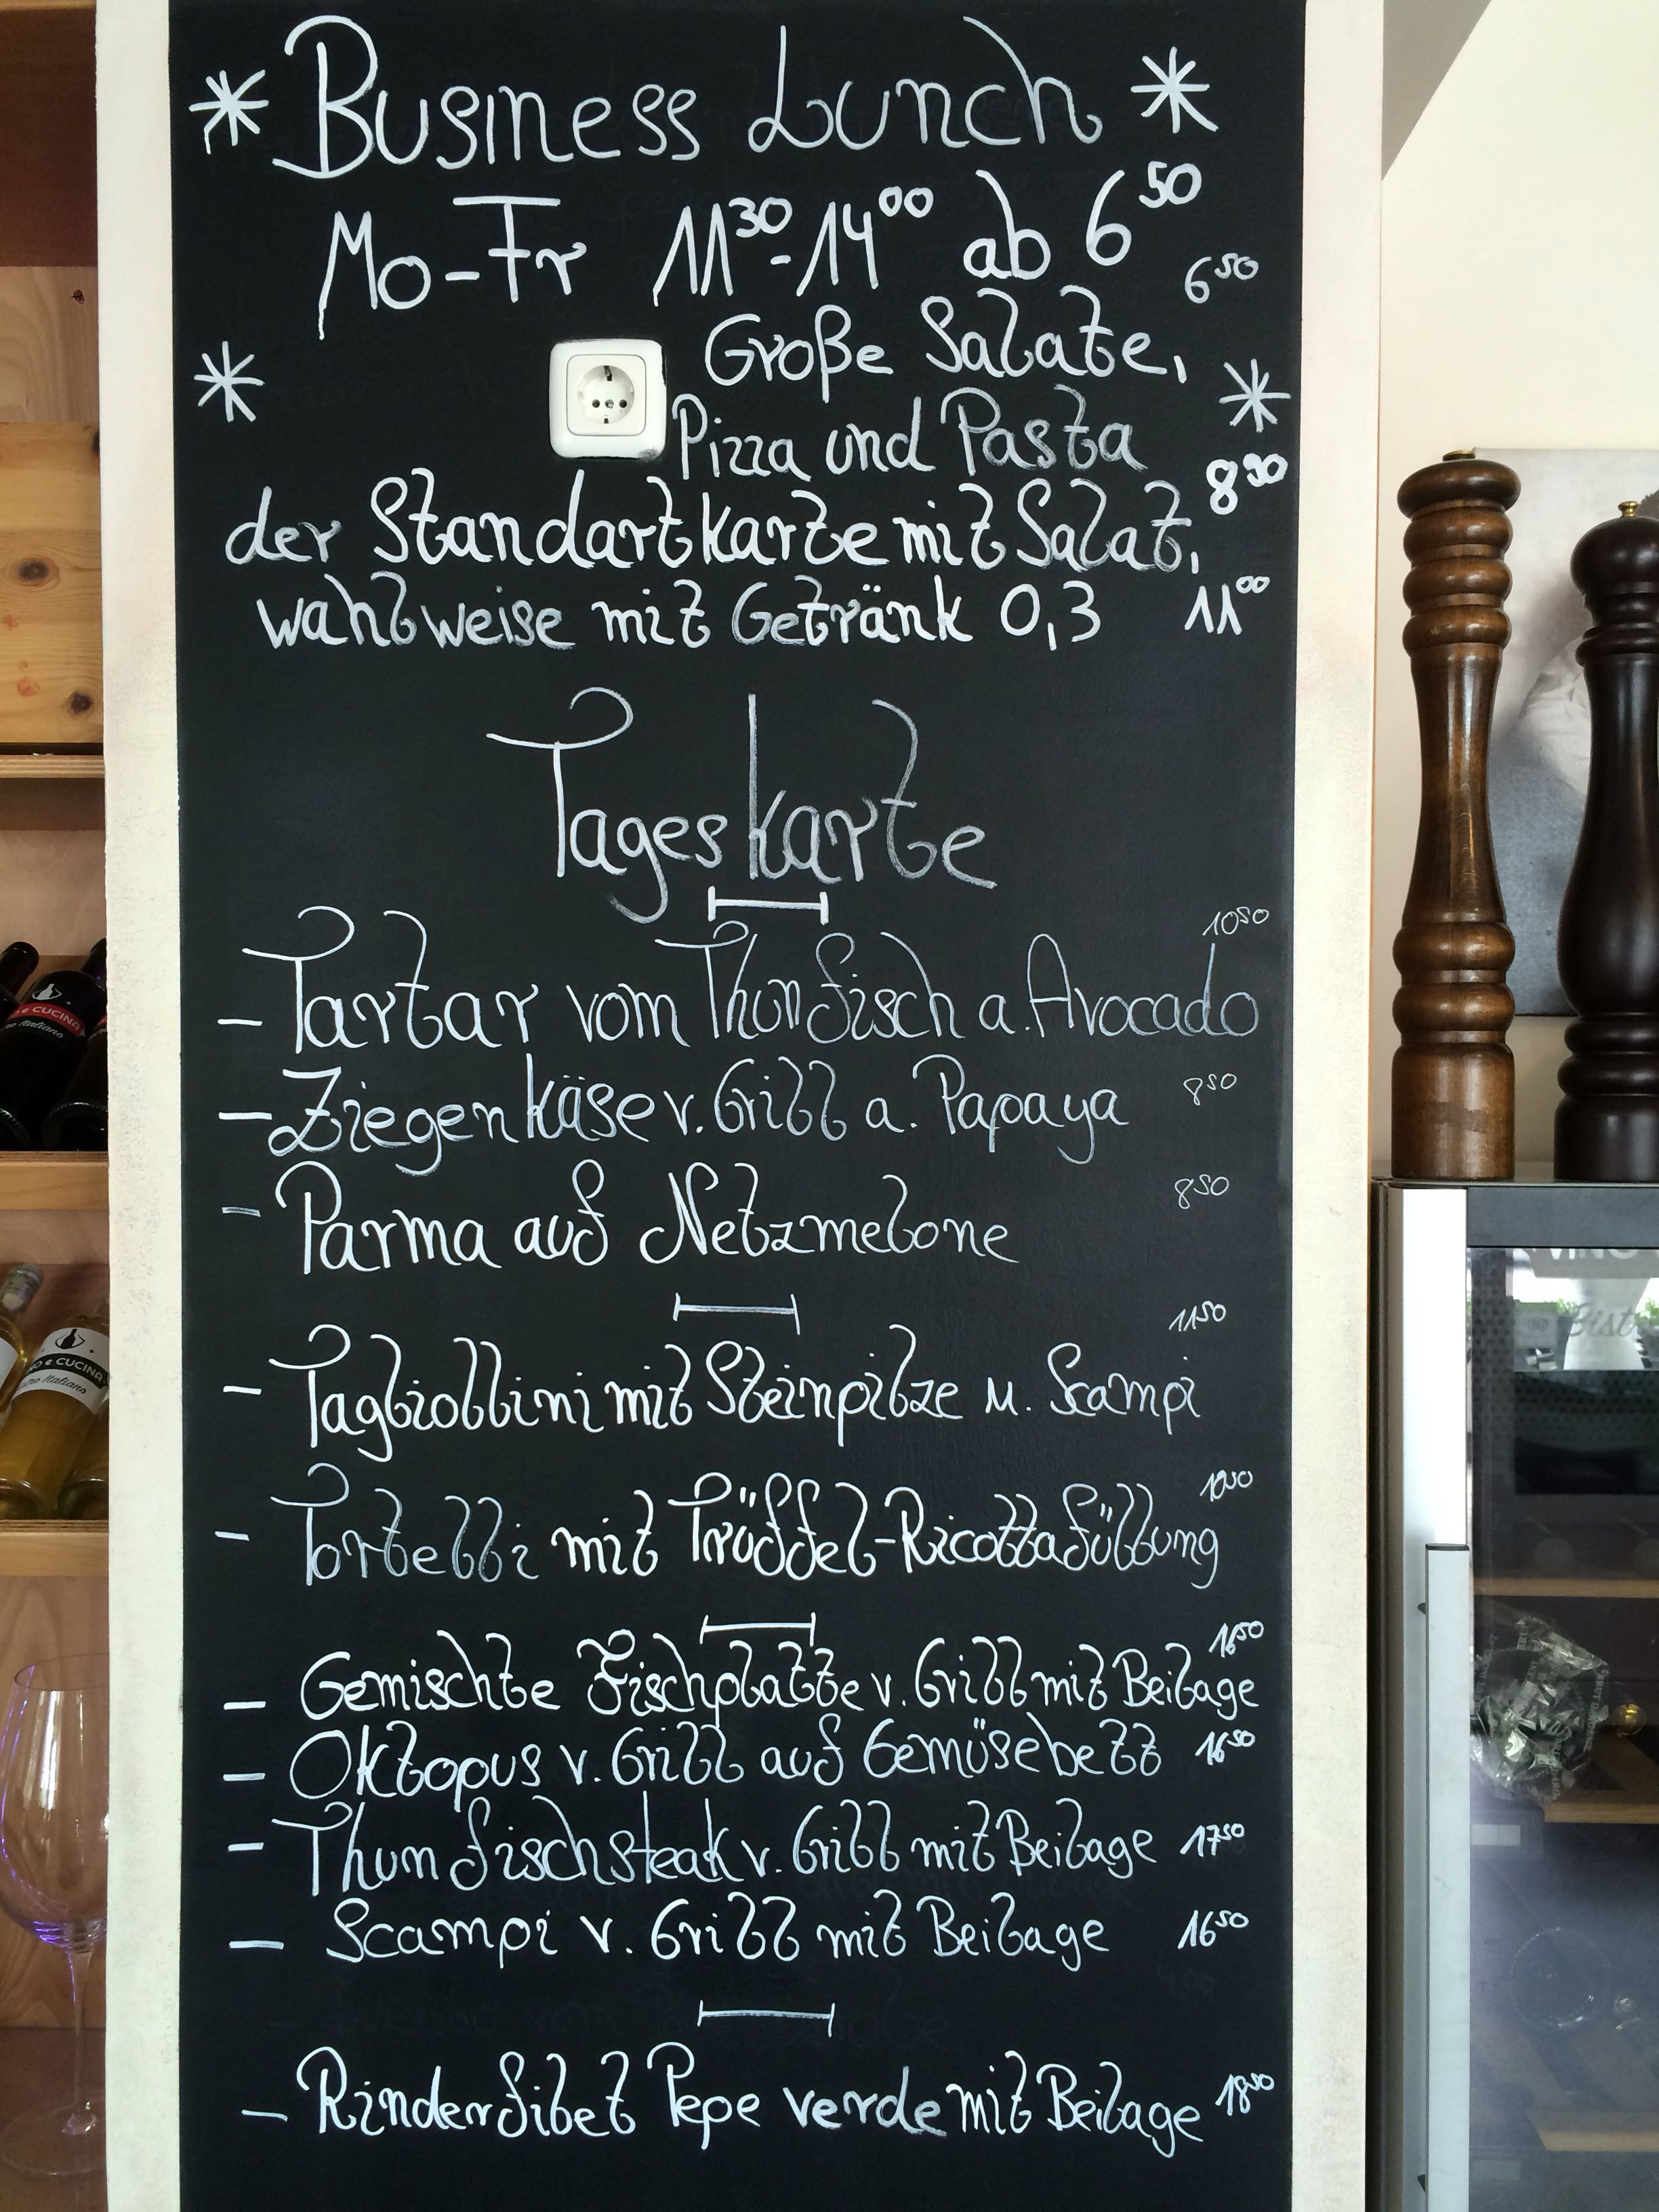 * Business Lunch *
Mo-Fr 11³⁰-14⁰⁰ ab 6⁵⁰
6⁵⁰
* Große Salate, *
Pizza und Pasta
8⁹⁰
der Standartkarte mit Salat,
wahlweise mit Getränk 0,3 11⁰⁰
Tageskarte
10⁵⁰
- Tartar vom Thunfisch a. Avocado
- Ziegenkäse v. Grill a. Papaya 8⁵⁰
- Parma auf Netzmelone 8⁵⁰
11⁵⁰
- Tagliollini mit Steinpilze u. Scampi
10⁵⁰
- Tortelli mit Trüffel-Ricottafüllung
16⁵⁰
- Gemischte Fischplatte v. Grill mit Beilage
- Oktopus v. Grill auf Gemüsebett 16⁵⁰
- Thunfischsteak v. Grill mit Beilage 17⁵⁰
- Scampi v. Grill mit Beilage 16⁵⁰
- Rinderfilet Pepe verde mit Beilage 18⁵⁰
e CUCINA
Italiano
e CUCINA
Italiano